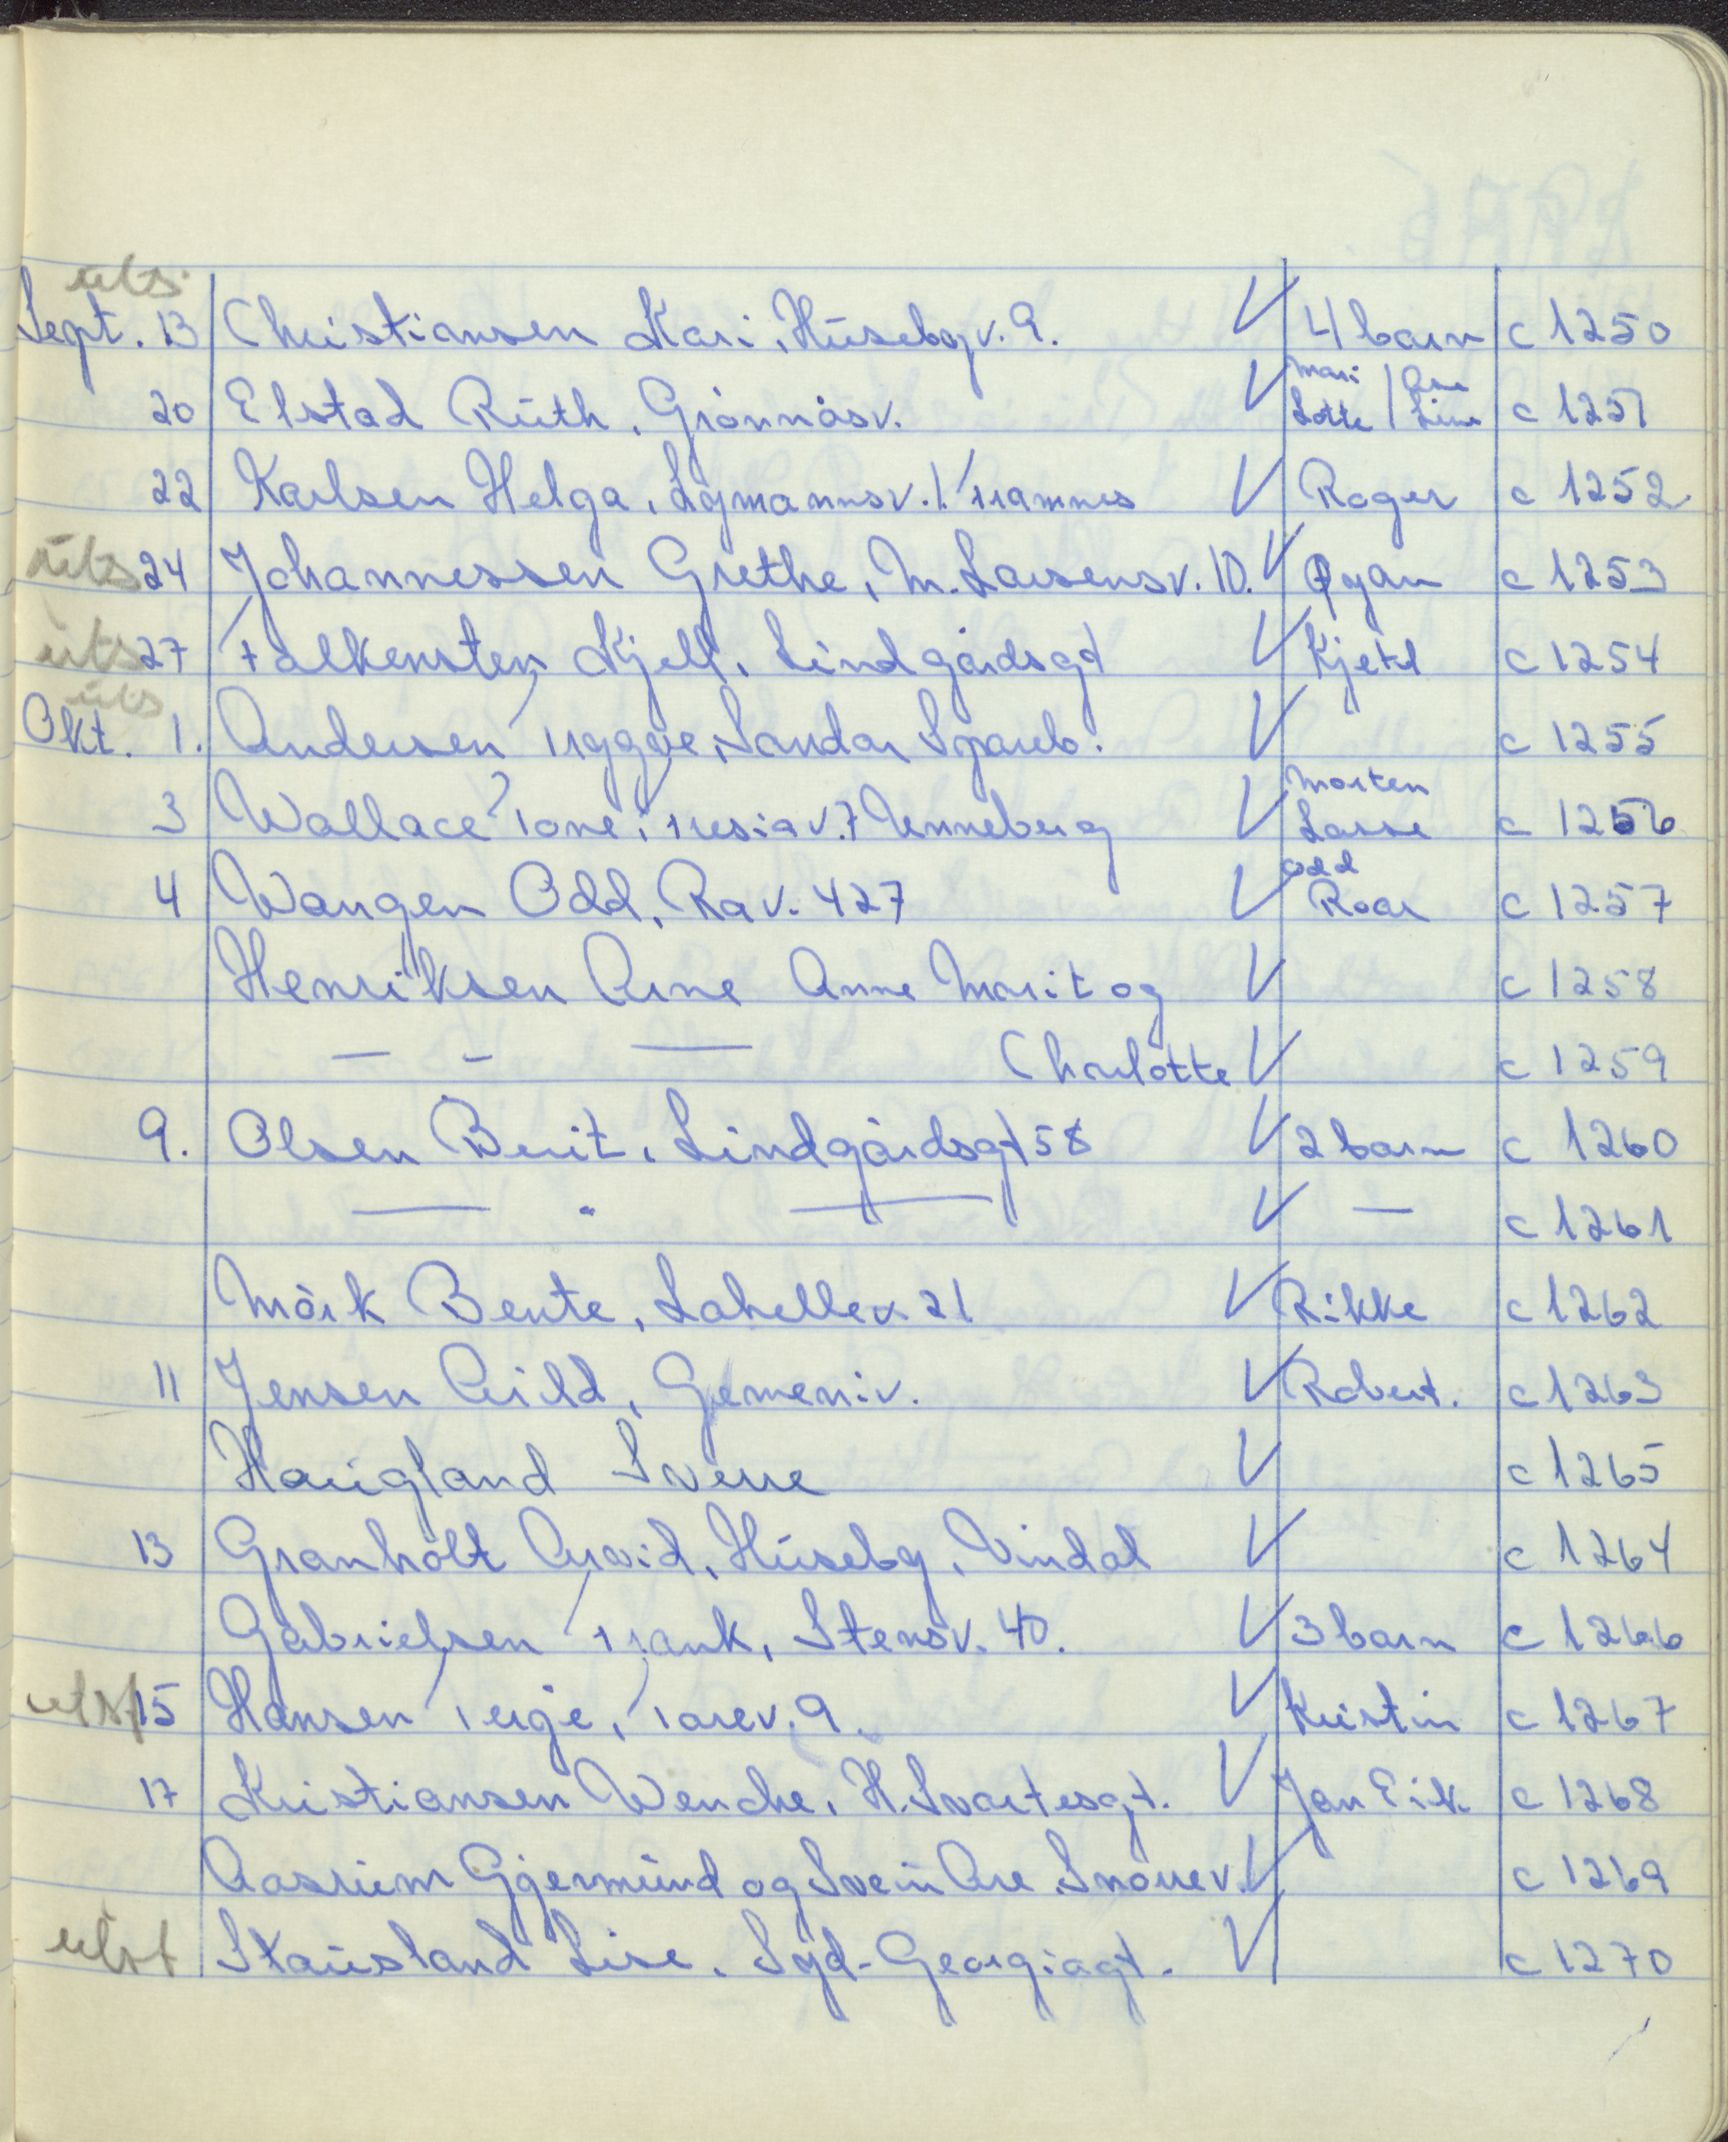 uts.
Sept. 13 Christiansen Kari, Húsebyv. 9. ✓ 4 barn c 1250
Mari / Åse
20 Elstad Rúth, Grönnåsv. ✓ Lotte / Line c 1251
22 Karlsen Helga, Symannsv. 1. Framnes ✓ Roger c 1252
uts 24 Johannessen Grethe, M. Larsensv. 10. ✓ Ørjan c 1253
uts 27 Falkensten Kjell, Lindgårdsgt ✓ Kjetil c 1254
uts
Okt. 1. Andersen Tryggve, Sandar Spareb. ✓ c 1255
Morten
3 Wallace Tone, Fresiav. 7 Unneberg ✓ Lasse c 1256
Odd
4 Wangen Odd, Rav. 427 ✓ Roar c 1257
Henriksen Arne Anne Marit og ✓ c 1258
— - — Charlotte ✓ c 1259
9. Olsen Berit, Lindgårdsgt 58 ✓ 2 barn c 1260
— " — ✓ — c 1261
Mörk Bente, Lahellev. 21 ✓ Rikke c 1262
11 Jensen Arild, Gemeniv. ✓ Robert. c 1263
Haúgland Sverre ✓ c 1265
13 Granholt Arvid, Húseby, Vindal ✓ c 1264
Gabrielsen Frank, Stensv. 40. ✓ 3 barn c 1266
utst 15 Hansen Terje, Torev. 9. ✓ Kristin c 1267
17 Kristiansen Wenche, H. Svartesgt. ✓ Jan Erik c 1268
Aasrúm Gjermúnd og Svein Are, Snorrev. ✓ c 1269
utst Staúsland Lise, Syd-Georgiagt. ✓ c 1270